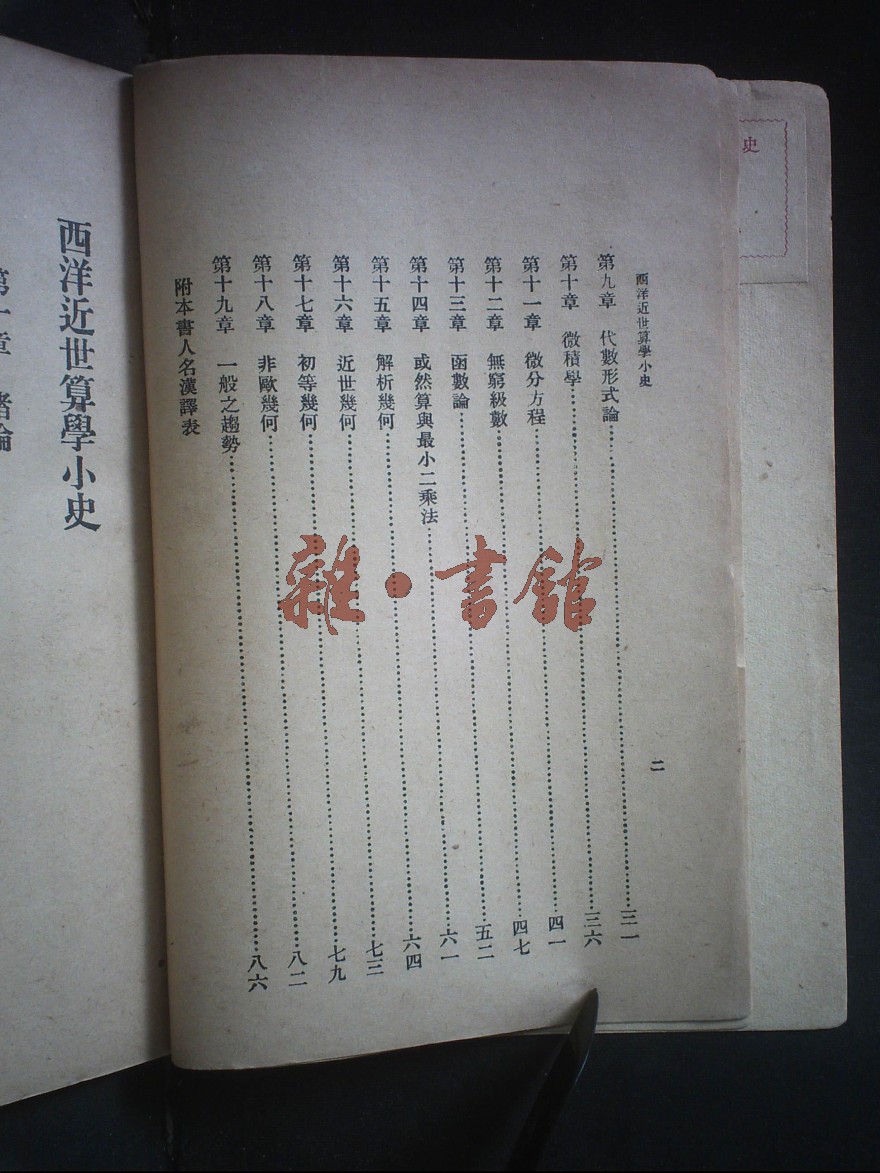 史
西洋近世算學小史
二
第九章 代數形式論……三一
第十章 微積學……三六
第十一章 微分方程……四一
第十二章 無窮級數……四七
第十三章 函數論……五二
第十四章 或然算與最小二乘法……六一
第十五章 解析幾何……六四
第十六章 近世幾何……七三
第十七章 初等幾何……七九
第十八章 非歐幾何……八二
第十九章 一般之趨勢……八六
附本書人名漢譯表
西洋近世算學小史
第一章 緒論
雜·書館